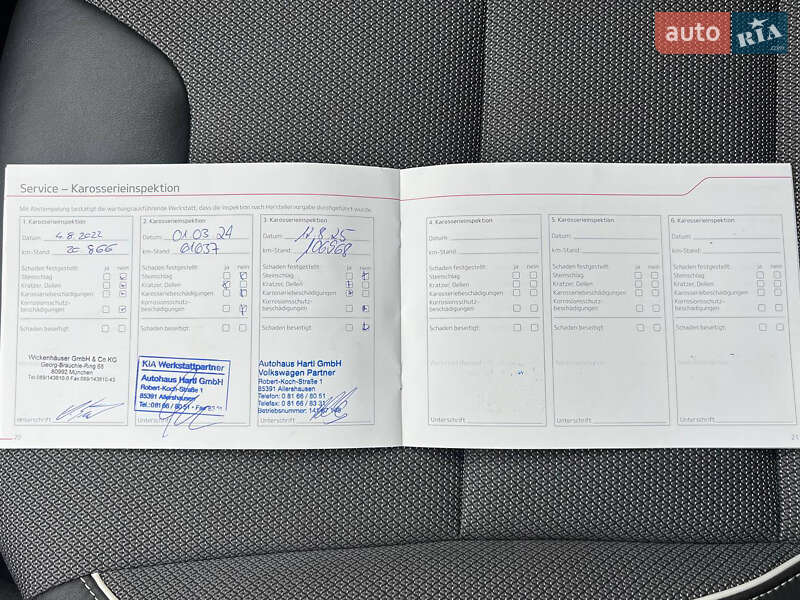 auto RIA
Service – Karosserieinspektion
Mit Abstempelung bestätigt die wartungsausführende Werkstatt, dass die Inspektion nach Herstellervorgabe durchgeführt wurde.
1. Karosserieinspektion
Datum: 4.8.2022
km-Stand: 20 866
Schaden festgestellt: ja nein
Steinschlag
Kratzer, Dellen
Karosseriebeschädigungen
Korrosionsschutz-
beschädigungen
Schaden beseitigt:
Wickenhäuser GmbH & Co KG
Georg-Brauchle-Ring 68
80992 München
Unterschrift
2. Karosserieinspektion
Datum: 01.03.24
km-Stand: 61637
Schaden festgestellt: ja nein
Steinschlag
Kratzer, Dellen
Karosseriebeschädigungen
Korrosionsschutz-
beschädigungen
Schaden beseitigt:
KIA Werkstattpartner
Autohaus Hartl GmbH
Robert-Koch-Straße 1
85391 Allershausen
Tel.: 081 66 / 80 51
Unterschrift
3. Karosserieinspektion
Datum:
km-Stand: 106968
Schaden festgestellt: ja nein
Steinschlag
Kratzer, Dellen
Karosseriebeschädigungen
Korrosionsschutz-
beschädigungen
Schaden beseitigt:
Autohaus Hartl GmbH
Volkswagen Partner
Robert-Koch-Straße 1
85391 Allershausen
Telefon: 0 81 66 / 80 51
Telefax: 0 81 66 / 83 31
Betriebsnummer:
Unterschrift
20
4. Karosserieinspektion
Datum:
km-Stand:
Schaden festgestellt: ja nein
Steinschlag
Kratzer, Dellen
Karosseriebeschädigungen
Korrosionsschutz-
beschädigungen
Schaden beseitigt:
Unterschrift
5. Karosserieinspektion
Datum:
km-Stand:
Schaden festgestellt: ja nein
Steinschlag
Kratzer, Dellen
Karosseriebeschädigungen
Korrosionsschutz-
beschädigungen
Schaden beseitigt:
Unterschrift
6. Karosserieinspektion
Datum:
km-Stand:
Schaden festgestellt: ja nein
Steinschlag
Kratzer, Dellen
Karosseriebeschädigungen
Korrosionsschutz-
beschädigungen
Schaden beseitigt:
Unterschrift
21